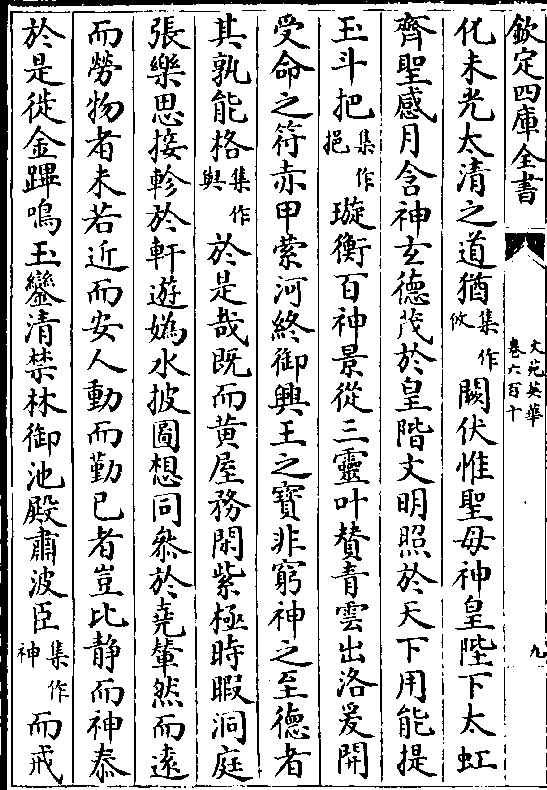 欽定四庫全書
文苑英華
卷六百十
九
化未光太清之道猶集作攸闕伏惟聖母神皇陛下太虹
齊聖感月含神玄德茂於皇階文明照於天下用能提
玉斗把集作挹璇衡百神景從三靈叶賛青雲出洛爰開
受命之符赤甲縈河終御興王之寶非窮神之至德者
其孰能格集作與於是哉既而黄屋務閑紫極時暇洞庭
張樂思接軫於軒遊嬀水披圖想同叅於堯輦然而逺
而勞物者未若近而安人動而勤已者豈比静而神泰
於是徙金蹕鳴玉鑾清禁林御池殿肅波臣集作神而戒